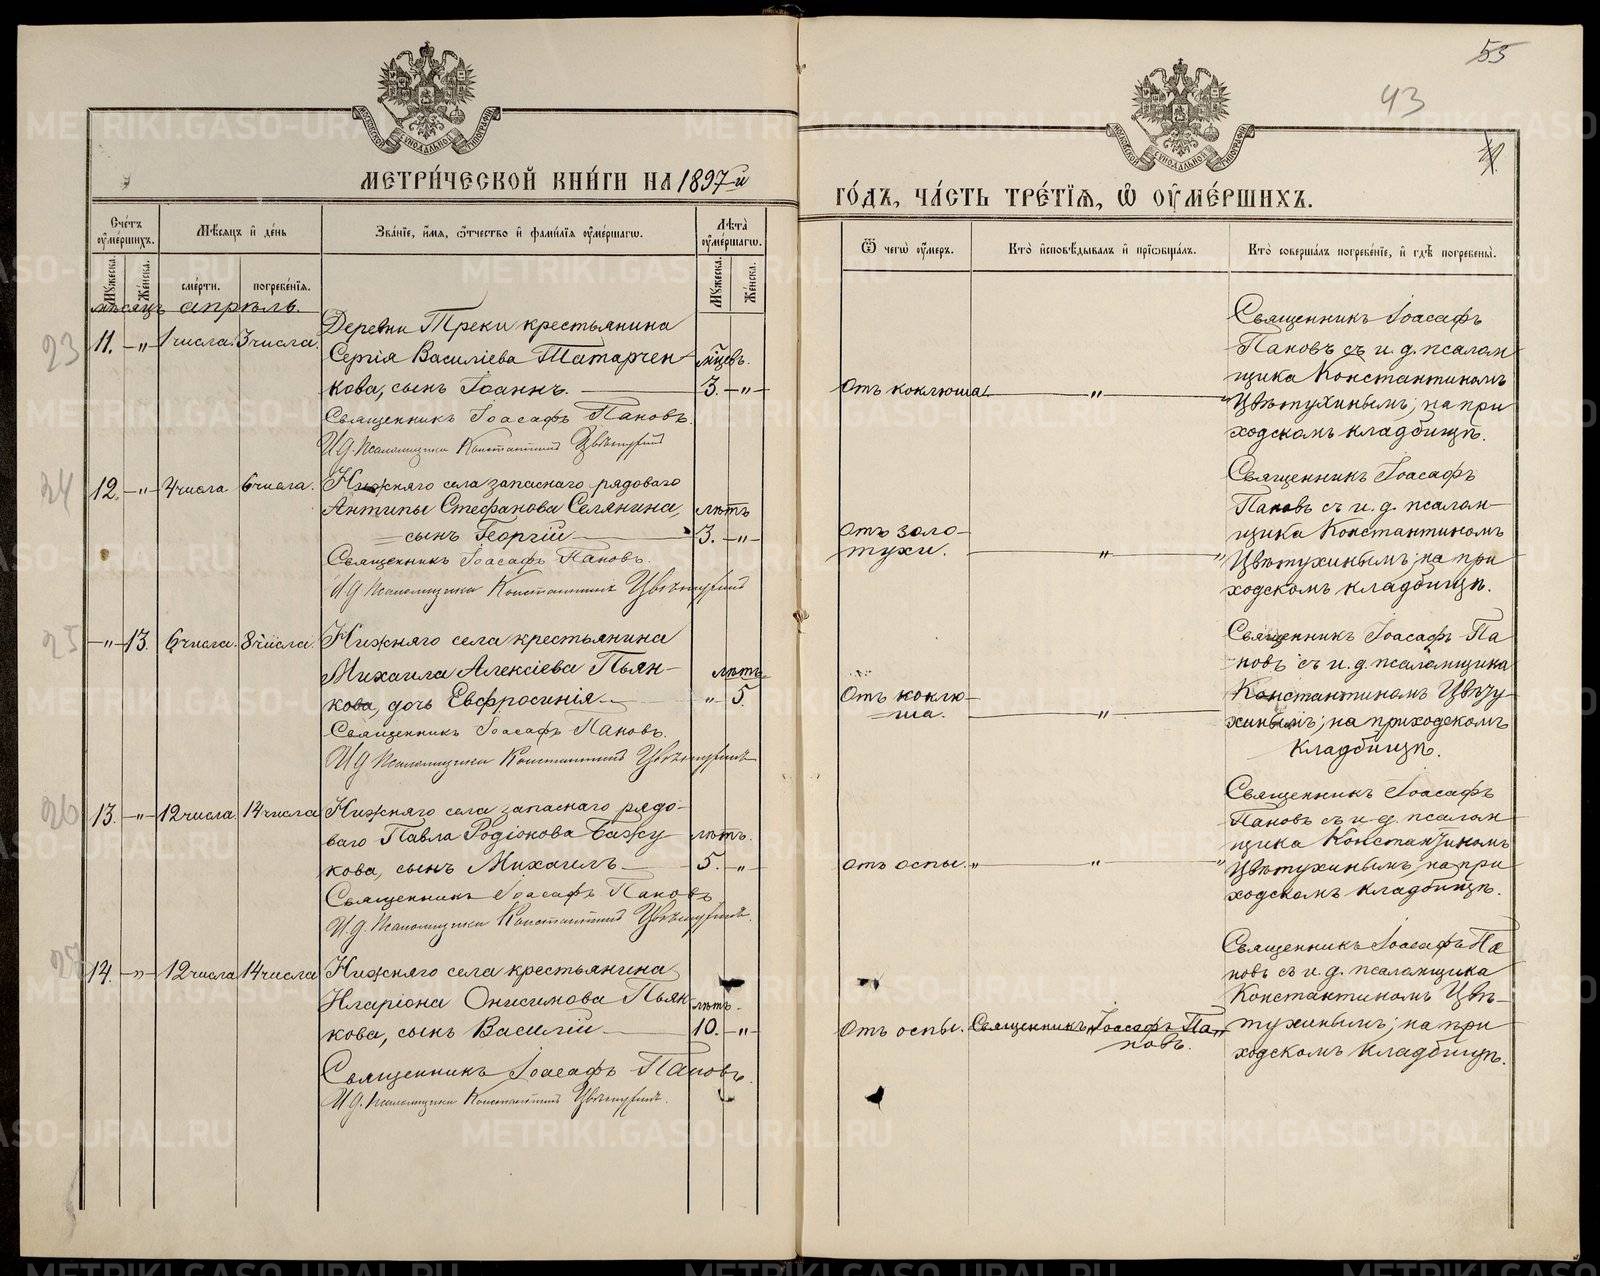 55
43
МЕТРИ́ЧЕСКОЙ КНИ́ГИ НА 1897й
ГО́ДЪ, ЧА́СТЬ ТРЕ́ТЇѦ, Ѽ ОУМЕ́РШИХЪ.
Сче́тъ оумершихъ.
Мѣсяцъ и де́нь
Зва́нїе, и́мѧ, ѻ҆тчество и фами́лїѧ оуме́ршагѡ.
Лѣта̀ оуме́ршагѡ.
Ѿ чегѡ̀ оу́меръ.
Кто̀ исповѣдывалъ и прїѡбща́лъ.
Кто̀ соверша́лъ погребе́нїе, и гдѣ̀ погребены̀.
Мужеска.
Же́нска.
сме́рти.
погребе́нїѧ.
Мужеска.
Же́нска.
мѣсяцъ апрѣль.
23
11. –„ 1 числа. 3 числа.
Деревни Треки крестьянина
Сергія Василіева Татарчен-
кова, сынъ Іоаннъ.
Священникъ Іоасафъ Пановъ.
И.д. Псаломщика Константинъ Цвѣтухинъ
мѣсцевъ.
3. –„–
Отъ коклюша.
„
Священникъ Іоасафъ
Пановъ съ и. д. псалом-
щика Константиномъ
Цвѣтухинымъ; на при
ходскомъ кладбищѣ.
24
12. –„– 4 числа 6 числа.
Нижняго села запаснаго рядоваго
Антипы Стефанова Селянина,
сынъ Георгій
Священникъ Іоасафъ Пановъ.
И д Псаломщика Константинъ Цвѣтухинъ
лѣтъ
3. –„–
Отъ золо-
тухи.
„
Священникъ Іоасафъ
Пановъ съ и. д. псалом-
щика Константиномъ
Цвѣтухинымъ; на при
ходскомъ кладбищѣ.
25
–„– 13. 6 числа. 8 числа.
Нижняго села крестьянина
Михаила Алексіева Пьян-
кова, дочь Евфросинія.
Священникъ Іоасафъ Пановъ.
И д Псаломщика Константинъ Цвѣтухинъ
лѣтъ
„ 5.
Отъ коклю-
ша.
„
Священникъ Іоасафъ Па
новъ съ и. д. псаломщика
Константиномъ Цвѣту-
хинымъ; на приходскомъ
кладбищѣ.
26
13. –„– 12 числа. 14 числа
Нижняго села запаснаго рядо-
ваго Павла Родіонова Бажу
кова, сынъ Михаилъ
Священникъ Іоасафъ Пановъ
И.д. Псаломщика Константинъ Цвѣтухинъ.
лѣтъ.
5. „
отъ оспы. „
„
Священникъ Іоасафъ
Пановъ съ и. д. псалом-
щика Константиномъ
Цвѣтухинымъ; на при
ходскомъ кладбищѣ.
27
14. –„– 12 числа 14 числа
Нижняго села крестьянина
Иларіона Онисимова Пьян-
кова, сынъ Василій
Священникъ Іоасафъ Пановъ.
И.д. Псаломщика Константинъ Цвѣтухинъ.
лѣтъ.
10. –„
Отъ оспы.
Священникъ Іоасафъ Па
новъ.
Священникъ Іоасафъ Па
новъ съ и. д. псаломщика
Константиномъ Цвѣ-
тухинымъ; на при
ходскомъ кладбищѣ.
METRIKI.GASO-URAL.RU